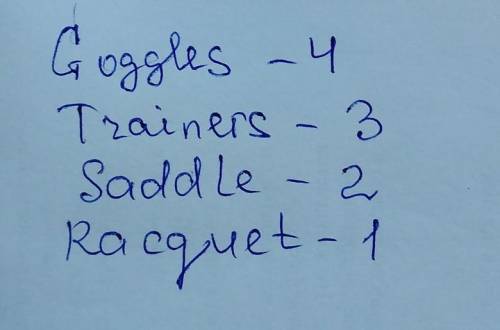 Goggles - 4
Trainers - 3
Saddle - 2
Racquet - 1